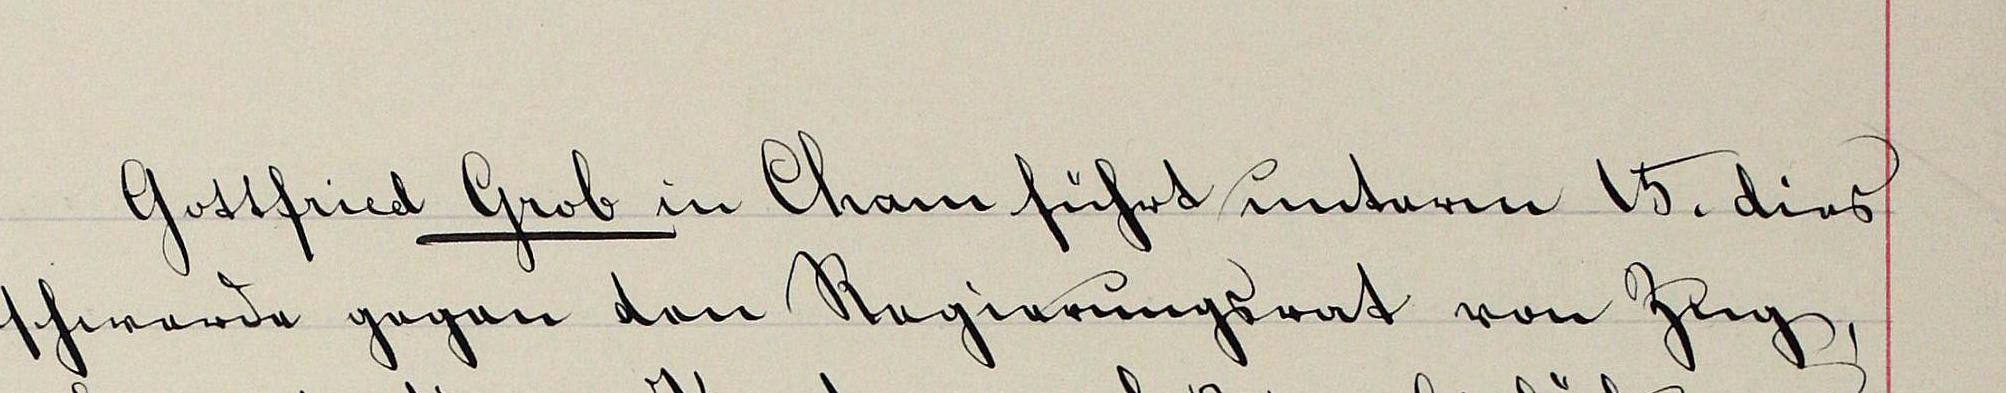 Gottfried Grob in Cham führt unterm 15. dies
schwerde gegen den Regierungsrat von Zug,